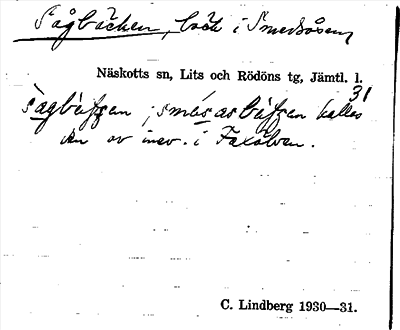 Sågbäcken, bäck i Smedsåsen,
Näskotts sn, Lits och Rödöns tg, Jämtl. l.
31
sagbäkken ; smésasbäkken kallas
den av inev. i Faxälven.
C. Lindberg 1930—31.